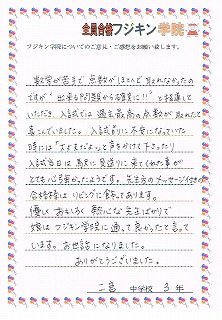 全員合格フジキン学院
フジキン学院についてのご意見・ご感想をお願い致します。
数学が苦手で点数がほとんど取れなかったの
ですが"出来る問題から確実に!!"と指導して
いただき、入試では過去最高の点数が取れたと
喜んでいました。入試前に不安になっていた
時には"大丈夫だよっ"と声をかけて下さったり
入試当日は駅に見送りに来てくれた事が
とても心強かったようです。先生方のメッセージ付きの
合格棒はリビングに飾ってあります。
優しい おもしろく 熱心な先生ばかりで
娘はフジキン学院に通って良かったと言って
います。お世話になりました。
ありがとうございました。
二島 中学校 3年